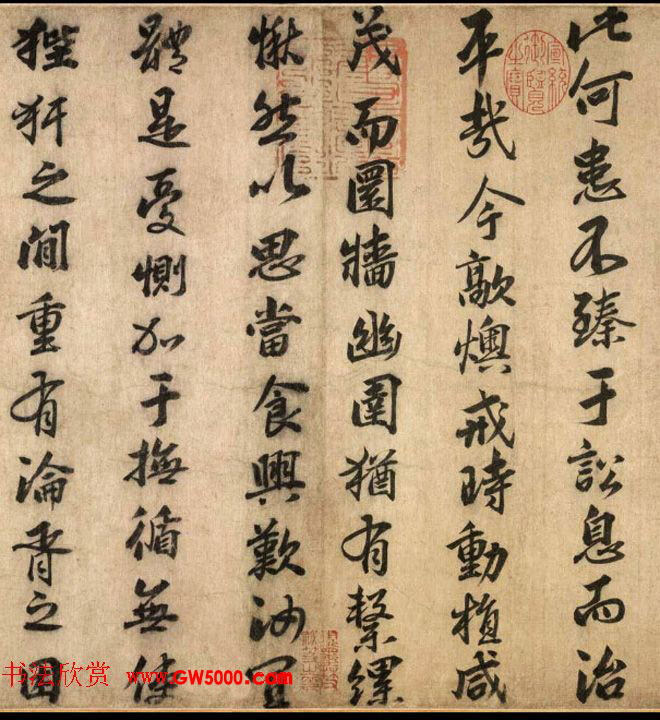 此何患不臻于訟息而治
平哉今歊燠戒時動植咸
茂而圜牆幽圄猶有繫縲
愀然以思當食興歎汝宜
體是憂惻加于撫循無使
狴犴之間重有淪胥之困
宣統御覽之寶
书法欣赏 www.GW5000.com